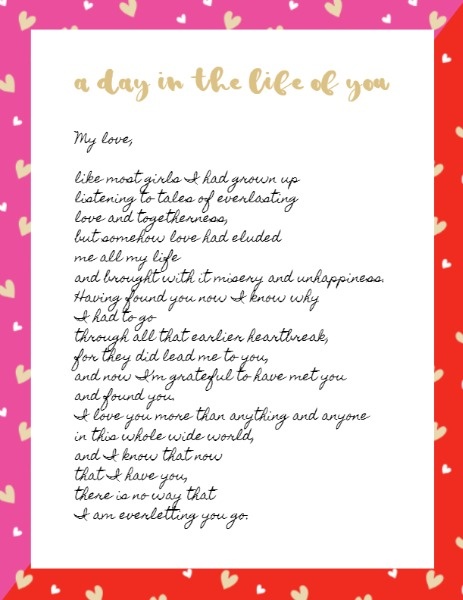 a day in the life of you
My love,
like most girls I had grown up
listening to tales of everlasting
love and togetherness,
but somehow love had eluded
me all my life
and brought with it misery and unhappiness.
Having found you now I know why
I had to go
through all that earlier heartbreak,
for they did lead me to you,
and now I'm grateful to have met you
and found you.
I love you more than anything and anyone
in this whole wide world,
and I know that now
that I have you,
there is no way that
I am everletting you go.